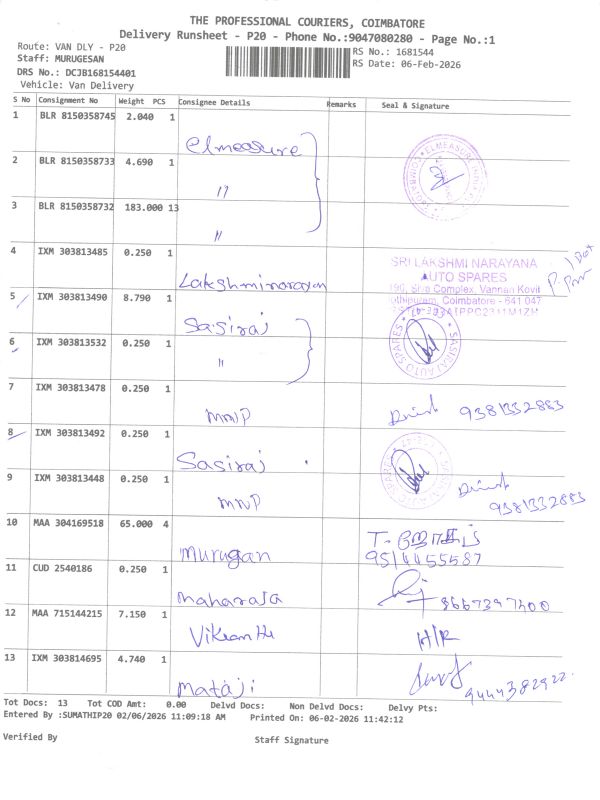 THE PROFESSIONAL COURIERS, COIMBATORE
Delivery Runsheet - P20 - Phone No.:9047080280 - Page No.:1
Route: VAN DLY - P20
RS No.: 1681544
Staff: MURUGESAN
RS Date: 06-Feb-2026
DRS No.: DCJB168154401
Vehicle: Van Delivery
S No Consignment No Weight PCS Consignee Details Remarks Seal & Signature
1 BLR 8150358745 2.040 1
elmeasure
ELMEASURE
2 BLR 8150358733 4.690 1
"
3 BLR 8150358732 183.000 13
"
4 IXM 303813485 0.250 1
Lakshminarayan
SRI LAKSHMI NARAYANA
AUTO SPARES
Complex, Vannan Kovil
Coimbatore - 641 047
5 IXM 303813490 8.790 1
Sasiraj
SASIRAJ AUTO SPARES
6 IXM 303813532 0.250 1
"
7 IXM 303813478 0.250 1
MNP
9381332883
8 IXM 303813492 0.250 1
Sasiraj
9 IXM 303813448 0.250 1
MNP
9381332883
10 MAA 304169518 65.000 4
Murugan
9514455587
11 CUD 2540186 0.250 1
Maharaja
8667397400
12 MAA 715144215 7.150 1
H/R
13 IXM 303814695 4.740 1
Mataji
9444382922
Tot Docs: 13 Tot COD Amt: 0.00 Delvd Docs: Non Delvd Docs: Delvy Pts:
Entered By :SUMATHIP20 02/06/2026 11:09:18 AM Printed On: 06-02-2026 11:42:12
Verified By Staff Signature